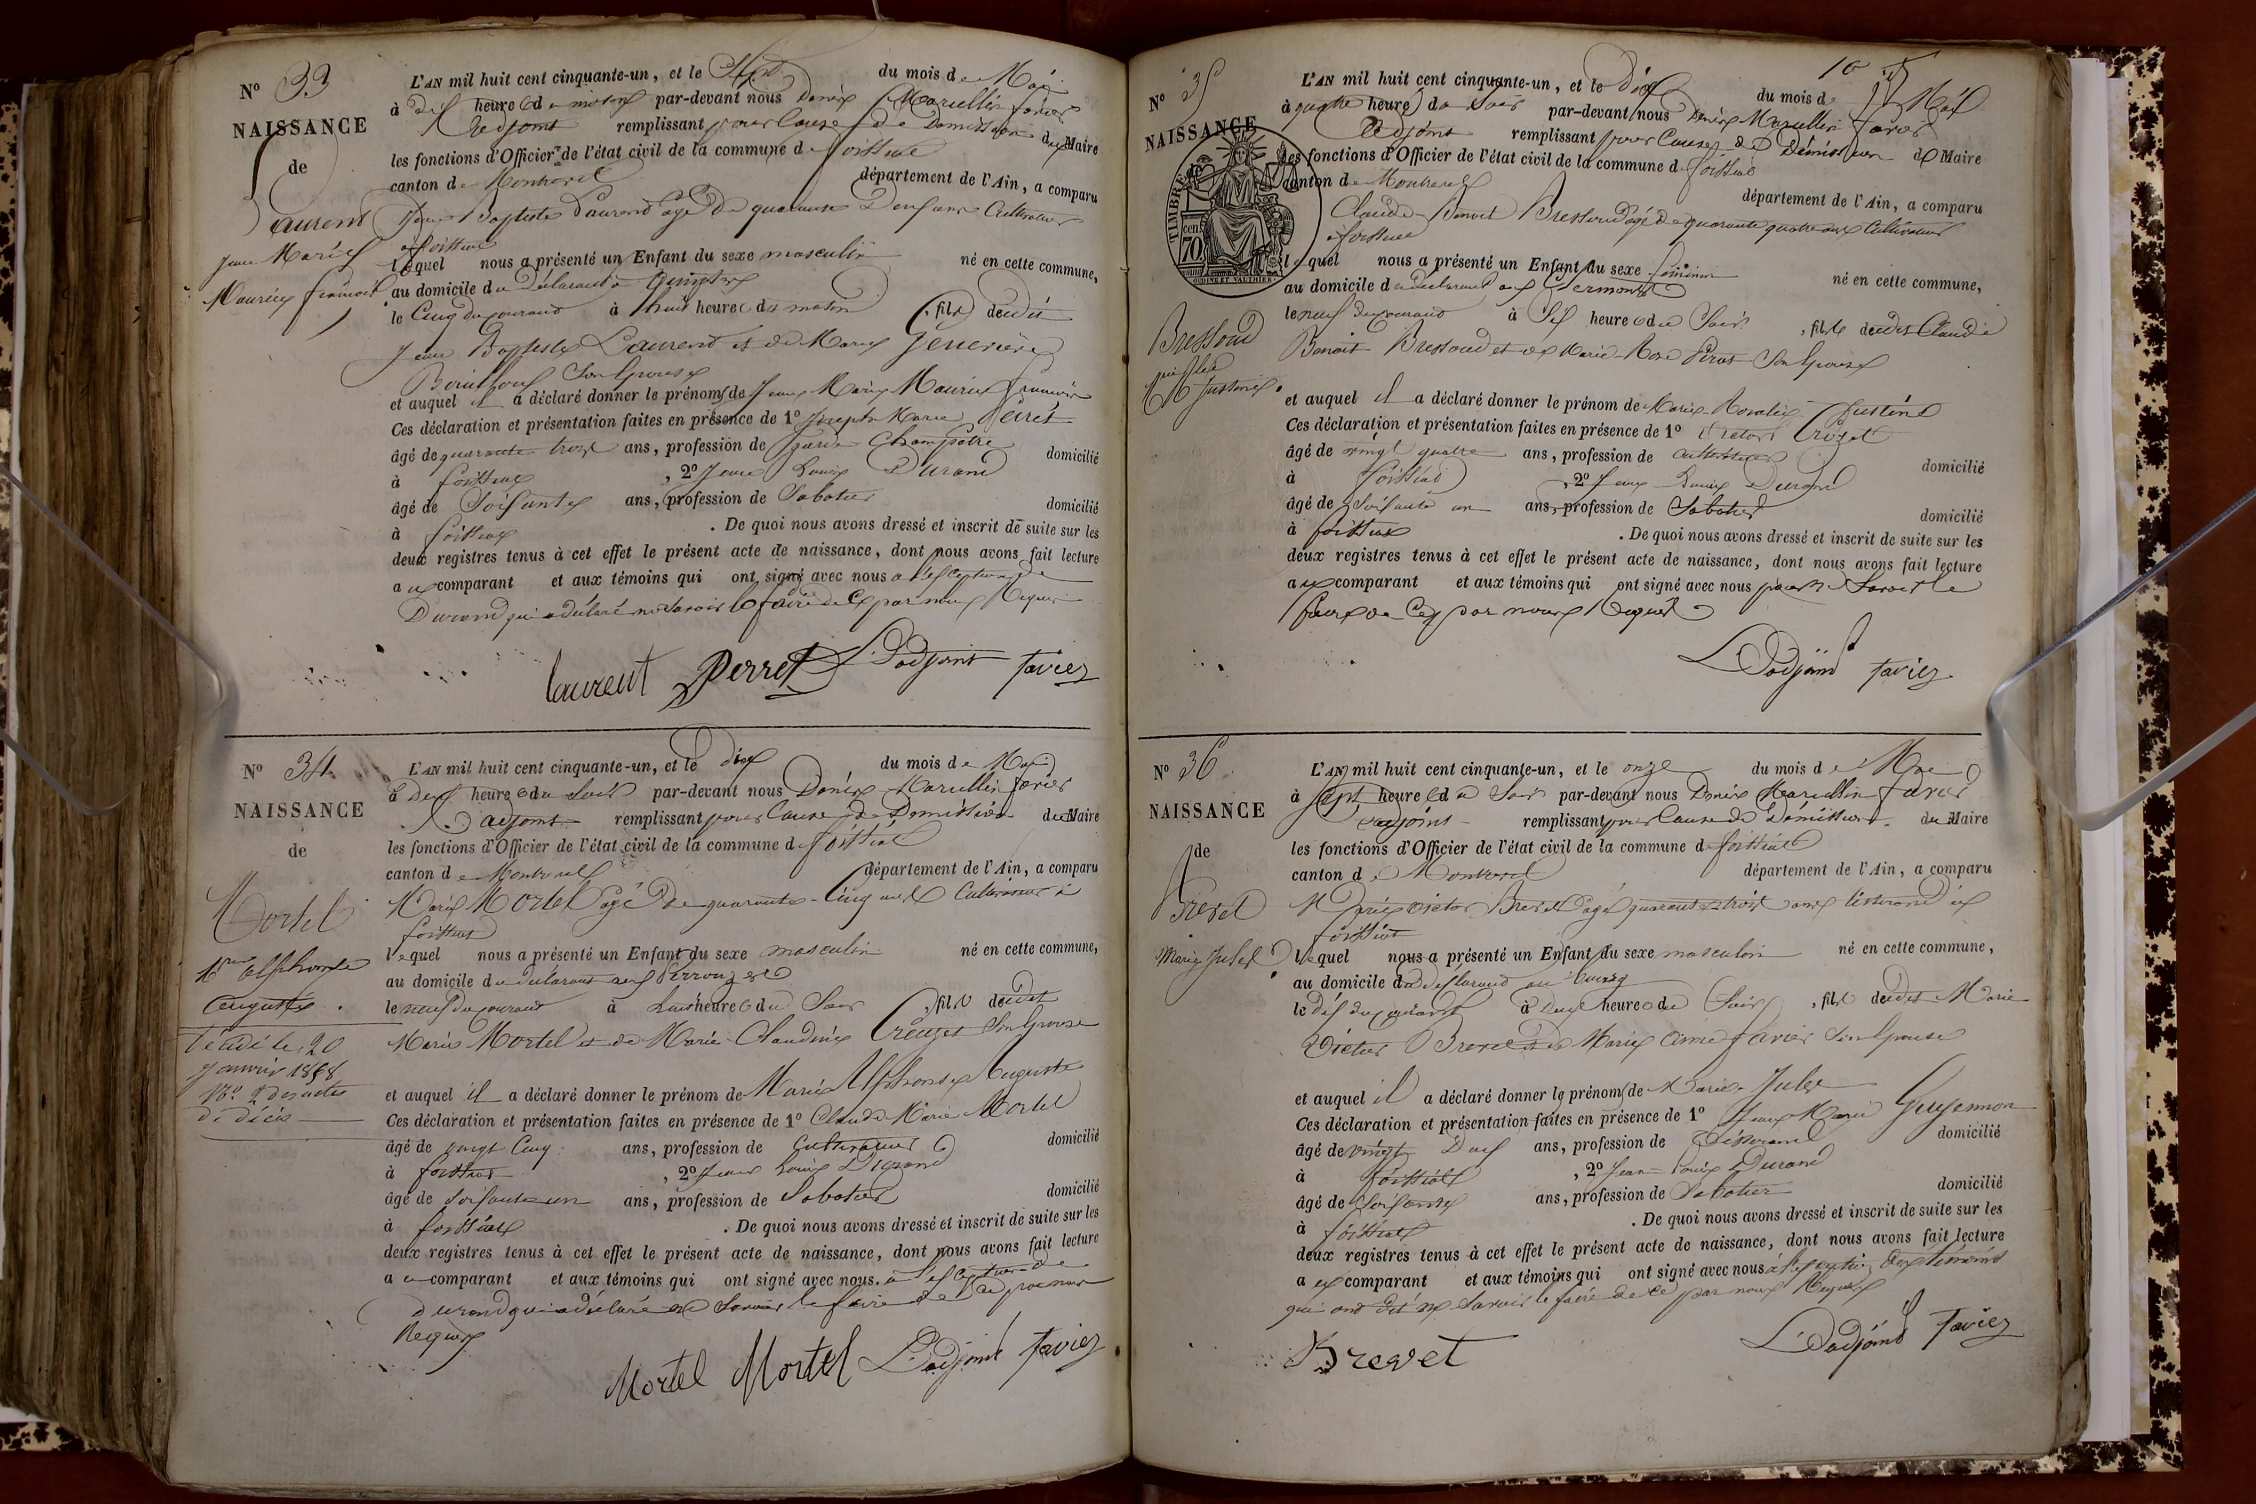 N° 33
NAISSANCE
de
Laurent
Jean Marie
Maurice françois
L'AN mil huit cent cinquante-un, et le Sept du mois de Mai
à dix heures du matin par-devant nous Denis Marcellin favier
adjoint remplissant pour cause de Démission du Maire
les fonctions d'Officier de l'état civil de la commune de foissiat
canton de Montrevel département de l'Ain, a comparu
Jean Baptiste Laurent agé de quarante Deux ans Cultivateur
à foissiat
lequel nous a présenté un Enfant du sexe masculin né en cette commune,
au domicile du Déclarant à
le Cinq du courant à huit heures du matin, fils dudit
Jean Baptiste Laurent et de Marie
son épouse
et auquel il a déclaré donner le prénoms de Jean Marie Maurice françois
Ces déclaration et présentation faites en présence de 1° Joseph Marie Peret
âgé de quarante trois ans, profession de garde Champêtre domicilié
à foissiat, 2° Jean Louis Durand
âgé de Soixante ans, profession de Sabotier domicilié
à foissiat. De quoi nous avons dressé et inscrit de suite sur les
deux registres tenus à cet effet le présent acte de naissance, dont nous avons fait lecture
aux comparant et aux témoins qui ont signé avec nous à l'exception de
Durand qui a déclaré ne savoir le faire de ce par nous Requis
Laurent Perret L'adjoint Favier
N° 34
NAISSANCE
de
Mortel
Mie alphonse
auguste
Décédé le 20
janvier 1858
N° 2 des actes
de décès
L'AN mil huit cent cinquante-un, et le dix du mois de Mai
à Deux heures du Soir par-devant nous Denis Marcellin favier
adjoint remplissant pour Cause de Démission du Maire
les fonctions d'Officier de l'état civil de la commune de foissiat
canton de Montrevel département de l'Ain, a comparu
Marie Mortel agé de quarante-Cinq ans Cultivateur à
foissiat
lequel nous a présenté un Enfant du sexe masculin né en cette commune,
au domicile du déclarant aux
le neuf du courant à heures du Soir, fils dudit
Marie Mortel et de Marie Claudine Creuzet Son épouse
et auquel il a déclaré donner le prénom de Marie Alphonse Auguste
Ces déclaration et présentation faites en présence de 1° Claude Marie Mortel
âgé de vingt Cinq ans, profession de Cultivateur domicilié
à foissiat, 2° Jean Louis Durand
âgé de Soixante un ans, profession de Sabotier domicilié
à foissiat. De quoi nous avons dressé et inscrit de suite sur les
deux registres tenus à cet effet le présent acte de naissance, dont nous avons fait lecture
au comparant et aux témoins qui ont signé avec nous à l'exception de
durand qui a déclaré ne Savoir le faire de ce par nous
Requis
Mortel Mortel L'adjoint Favier
10
N° 35
NAISSANCE
de
TIMBRE
cen. 70
OUDINÉ ET GAUTHIER
Bressoud
Mie Rosalie
Justine
L'AN mil huit cent cinquante-un, et le dix du mois de Mai
à quatre heures du Soir par-devant nous Denis Marcellin favier
adjoint remplissant pour Cause de Démission du Maire
les fonctions d'Officier de l'état civil de la commune de foissiat
canton de Montrevel département de l'Ain, a comparu
Claude Benoit Bressoud agé de quarante quatre ans Cultivateur
à foissiat
lequel nous a présenté un Enfant du sexe féminin né en cette commune,
au domicile du déclarant aux
le neuf du courant à Six heures du Soir, fille dudit Claude
Benoit Bressoud et de Marie Rose Son épouse
et auquel il a déclaré donner le prénom de Marie Rosalie Justine
Ces déclaration et présentation faites en présence de 1° Victor Crozet
âgé de vingt quatre ans, profession de cultivateur domicilié
à foissiat, 2° Jean Louis Durand
âgé de Soixante un ans, profession de Sabotier domicilié
à foissiat. De quoi nous avons dressé et inscrit de suite sur les
deux registres tenus à cet effet le présent acte de naissance, dont nous avons fait lecture
aux comparant et aux témoins qui ont signé avec nous Savoir le
faire de Ce par nous Requis
L'adjoint Favier
N° 36
NAISSANCE
de
Brevet
Marie Jules
L'AN mil huit cent cinquante-un, et le onze du mois de Mai
à Sept heures du Soir par-devant nous Denis Marcellin favier
adjoint remplissant pour Cause de Démission du Maire
les fonctions d'Officier de l'état civil de la commune de foissiat
canton de Montrevel département de l'Ain, a comparu
Marie Victor Brevet agé quarante trois ans tisserand à
foissiat
lequel nous a présenté un Enfant du sexe masculin né en cette commune,
au domicile du déclarant au bourg
le dix du courant à deux heures du Soir, fils dudit Marie
Victor Brevet et de Marie favier Son épouse
et auquel il a déclaré donner le prénoms de Marie Jules
Ces déclaration et présentation faites en présence de 1° Jean Marie Guyennon
âgé de vingt Deux ans, profession de tisserand domicilié
à foissiat, 2° Jean Louis Durand
âgé de Soixante ans, profession de Sabotier domicilié
à foissiat. De quoi nous avons dressé et inscrit de suite sur les
deux registres tenus à cet effet le présent acte de naissance, dont nous avons fait lecture
aux comparant et aux témoins qui ont signé avec nous à l'exception des témoins
qui ont dit ne Savoir le faire de ce par nous Requis
Brevet L'adjoint Favier